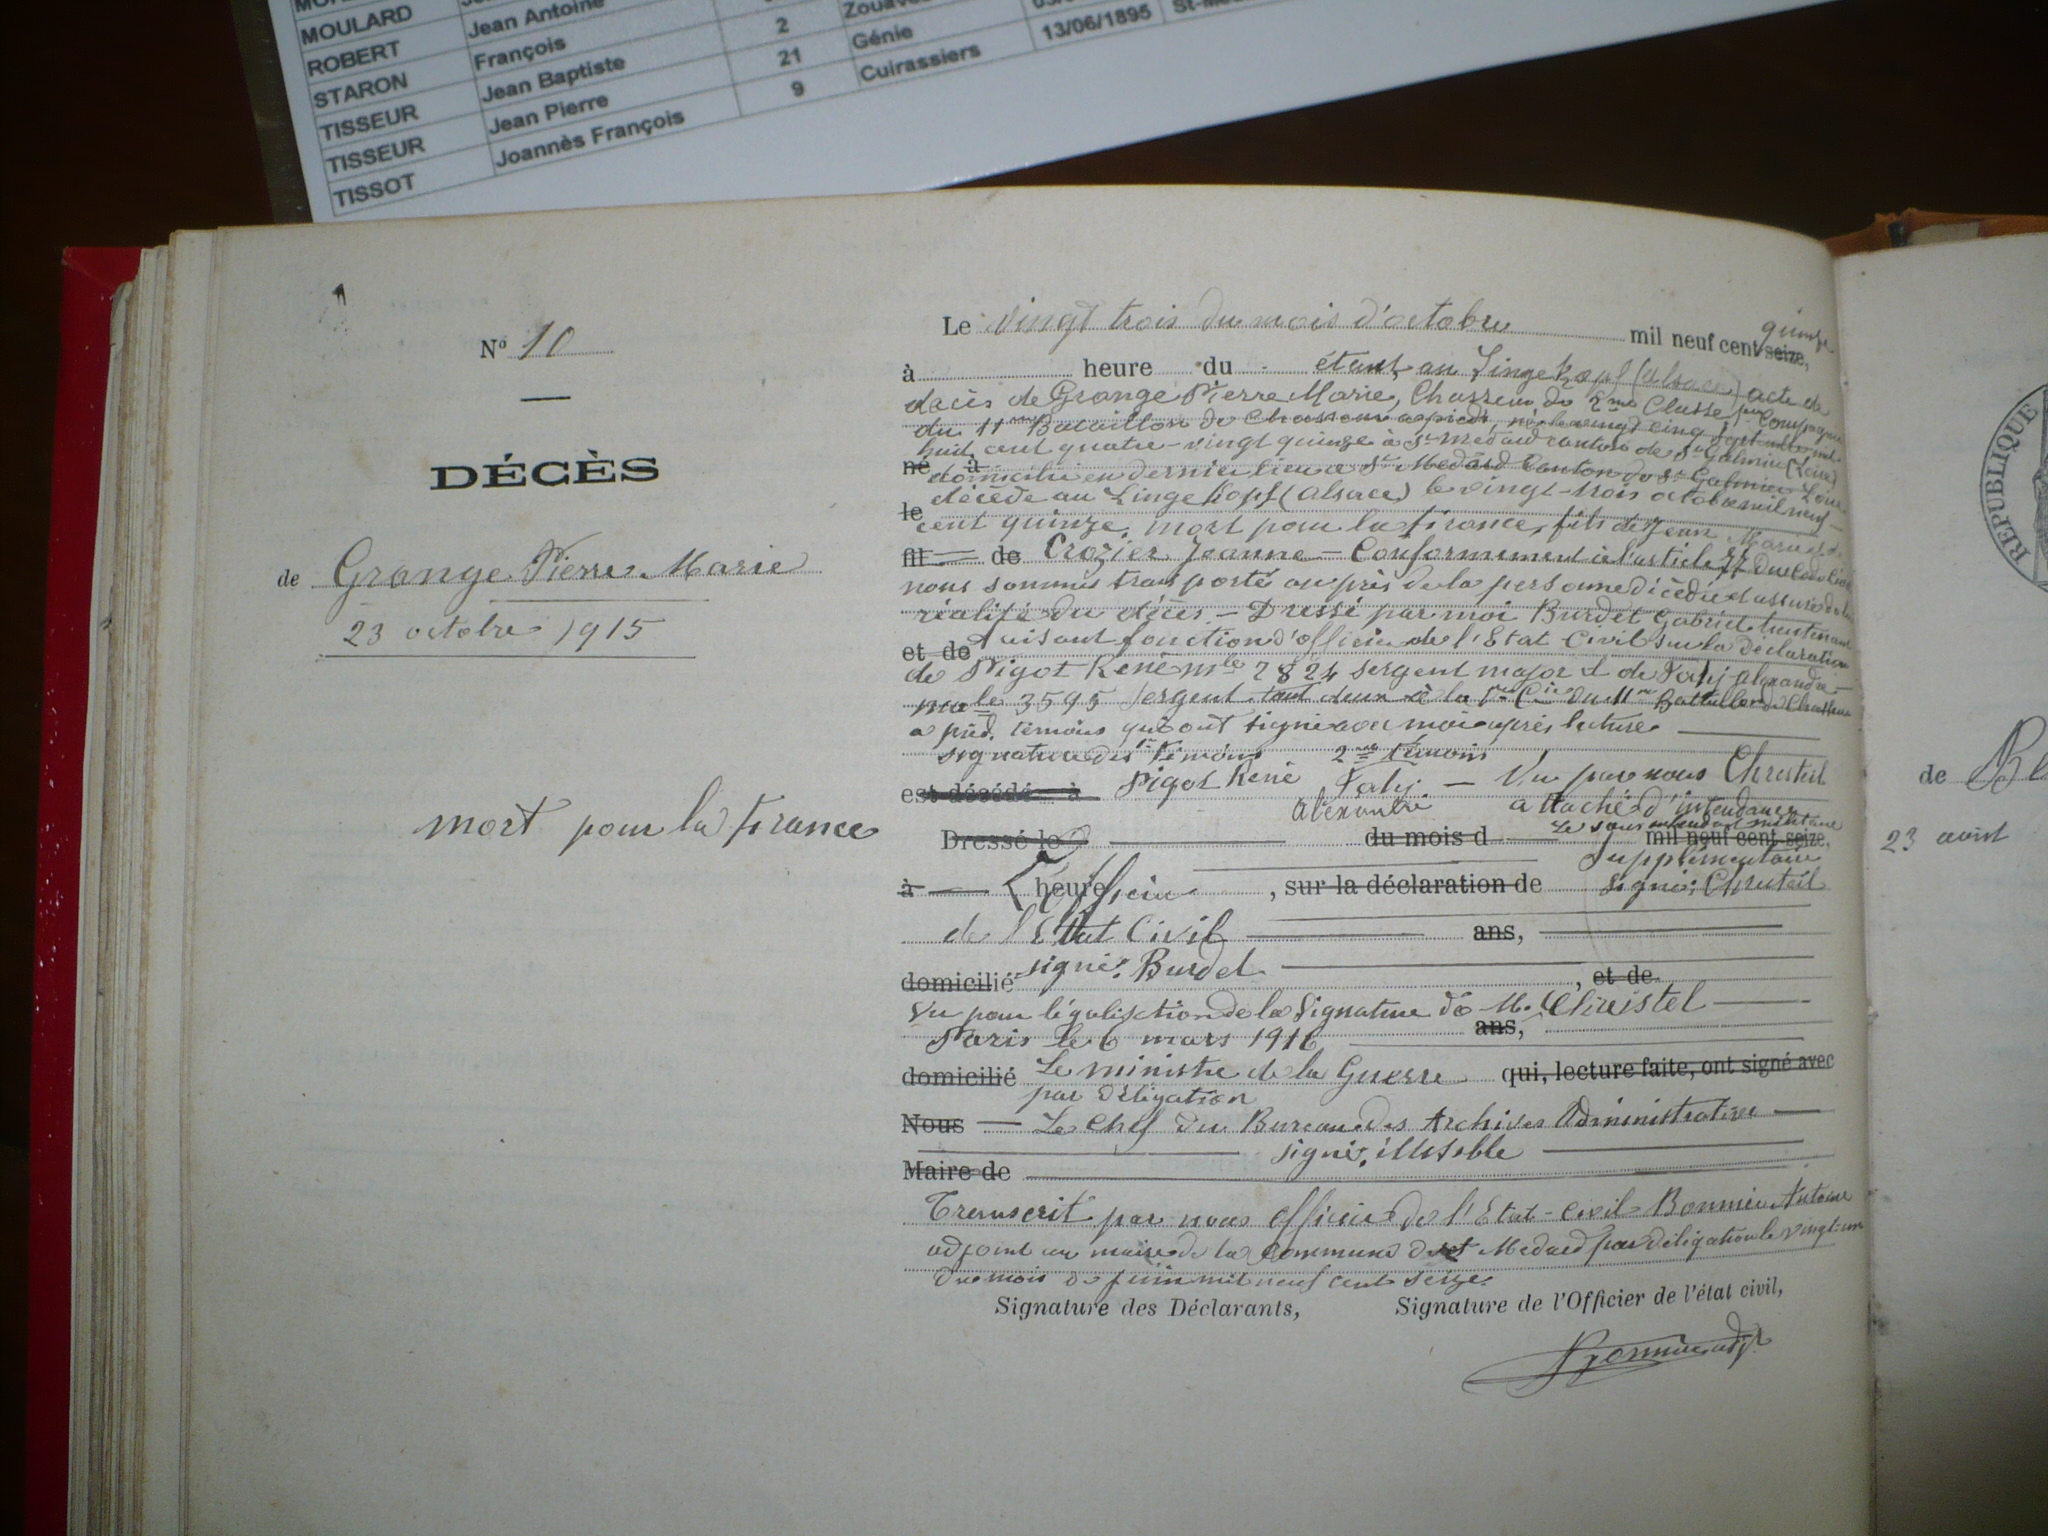 MOULARD
ROBERT Jean Antoine
STARON François 2 Zouaves
TISSEUR Jean Baptiste 21 Génie
TISSEUR Jean Pierre 9 Cuirassiers 13/06/1895
TISSOT Joannès François
Nº 10
DÉCÈS
de Grange Pierre Marie
23 octobre 1915
mort pour la france
Le vingt trois du mois d'octobre mil neuf cent seize, quinze
à heure du étant au Lingekopf (alsace) acte de
décès de Grange Pierre Marie, Chasseur de 2me Classe Compagnie
du 11me Bataillon de Chasseurs a pieds, né le vingt cinq mil
huit cent quatre-vingt quinze à St Medard canton de St Galmier (Loire)
né à domicilié en dernier lieu a St Medard Canton de St Galmier Loire
décédé au Linge Kopf (alsace) le vingt-trois octobre mil neuf
le cent quinze, mort pour la france, fils de Jean Marie
fil de Crozier Jeanne - Conformement à l'article 77 du
nous sommes transporté au près de la personne décédée et assuré de la
réalité du décès - Dressé par moi Burdet Gabriel lieutenant
et de faisant fonction d'officier de l'Etat Civil sur la déclaration
de Pigot René mle 2824 sergent major et de alexandre
male 3595 Sergent tout deux à la Cie du 11me Bataillon de Chasseurs
a pied, témoins qui ont signé avec moi après lecture
signature des témoins 2me témoin
est décédé à Pigot René - Vu par nous
Alexandre attaché d'intendance
Dressé le du mois d Le sous intendant militaire mil neuf cent seize,
Supplémentaire
à heure L'officier , sur la déclaration de signé:
de l'Etat Civil ans,
domicilié signé: Burdet , et de
Vu pour légalisction de la Signature de M. Christel
Paris le 6 mars 1916 ans,
domicilié Le ministre de la Guerre qui, lecture faite, ont signé avec
par Déligation
Nous Le Chef du Bureau des Archives Administratives
signé: illisible
Maire de
Trenscrit par nous officier de l'Etat-Civil Antoine
adjoint au maire de la Commune de St Medard par déligation le vingt-un
du mois de juin mil neuf cent seize.
Signature des Déclarants, Signature de l'Officier de l'état civil,
REPUBLIQUE
de
23 avril